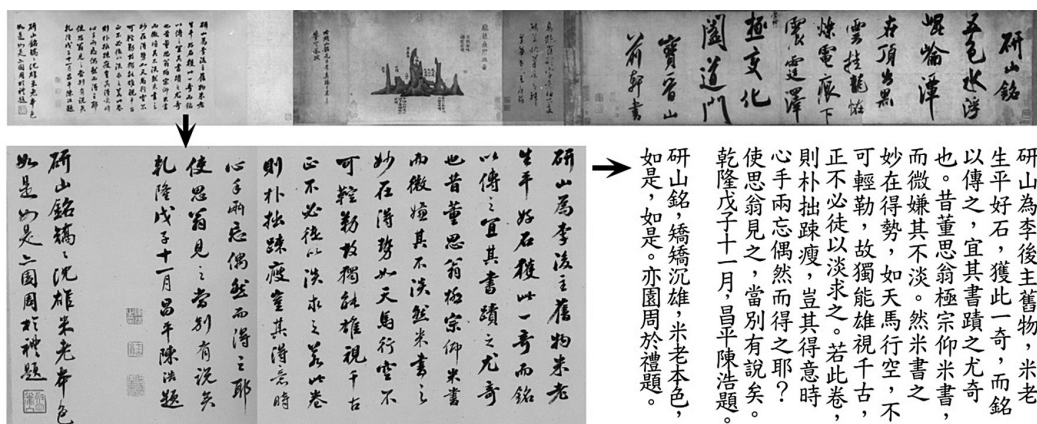 研山銘
五色水浮
崐崘潭
在頂出黑
雲挂龍怪
爍電痕下
震霆澤
極變化
闔道門
寳晉山
前軒書
研山為李後主舊物米老
生平好石獲此一奇而銘
以傳之宜其書蹟之尤奇
也昔董思翁極宗仰米書
而微嫌其不淡然米書之
妙在得勢如天馬行空不
可鞚勒故獨能雄視千古
正不必徒以淡求之若此卷
則朴拙疎瘦豈其得意時
心手兩忘偶然而得之耶
使思翁見之當別有說矣
乾隆戊子十一月昌平陳浩題
研山銘矯〻沈雄米老本色
如是如是亦園周於禮題
研山為李後主舊物，米老
生平好石，獲此一奇，而銘
以傳之，宜其書蹟之尤奇
也。昔董思翁極宗仰米書，
而微嫌其不淡。然米書之
妙在得勢，如天馬行空，不
可輕勒，故獨能雄視千古，
正不必徒以淡求之。若此卷，
則朴拙踈瘦，豈其得意時
心手兩忘偶然而得之耶？
使思翁見之，當別有說矣。
乾隆戊子十一月，昌平陳浩題。
研山銘，矯矯沉雄，米老本色，
如是，如是。亦園周於禮題。